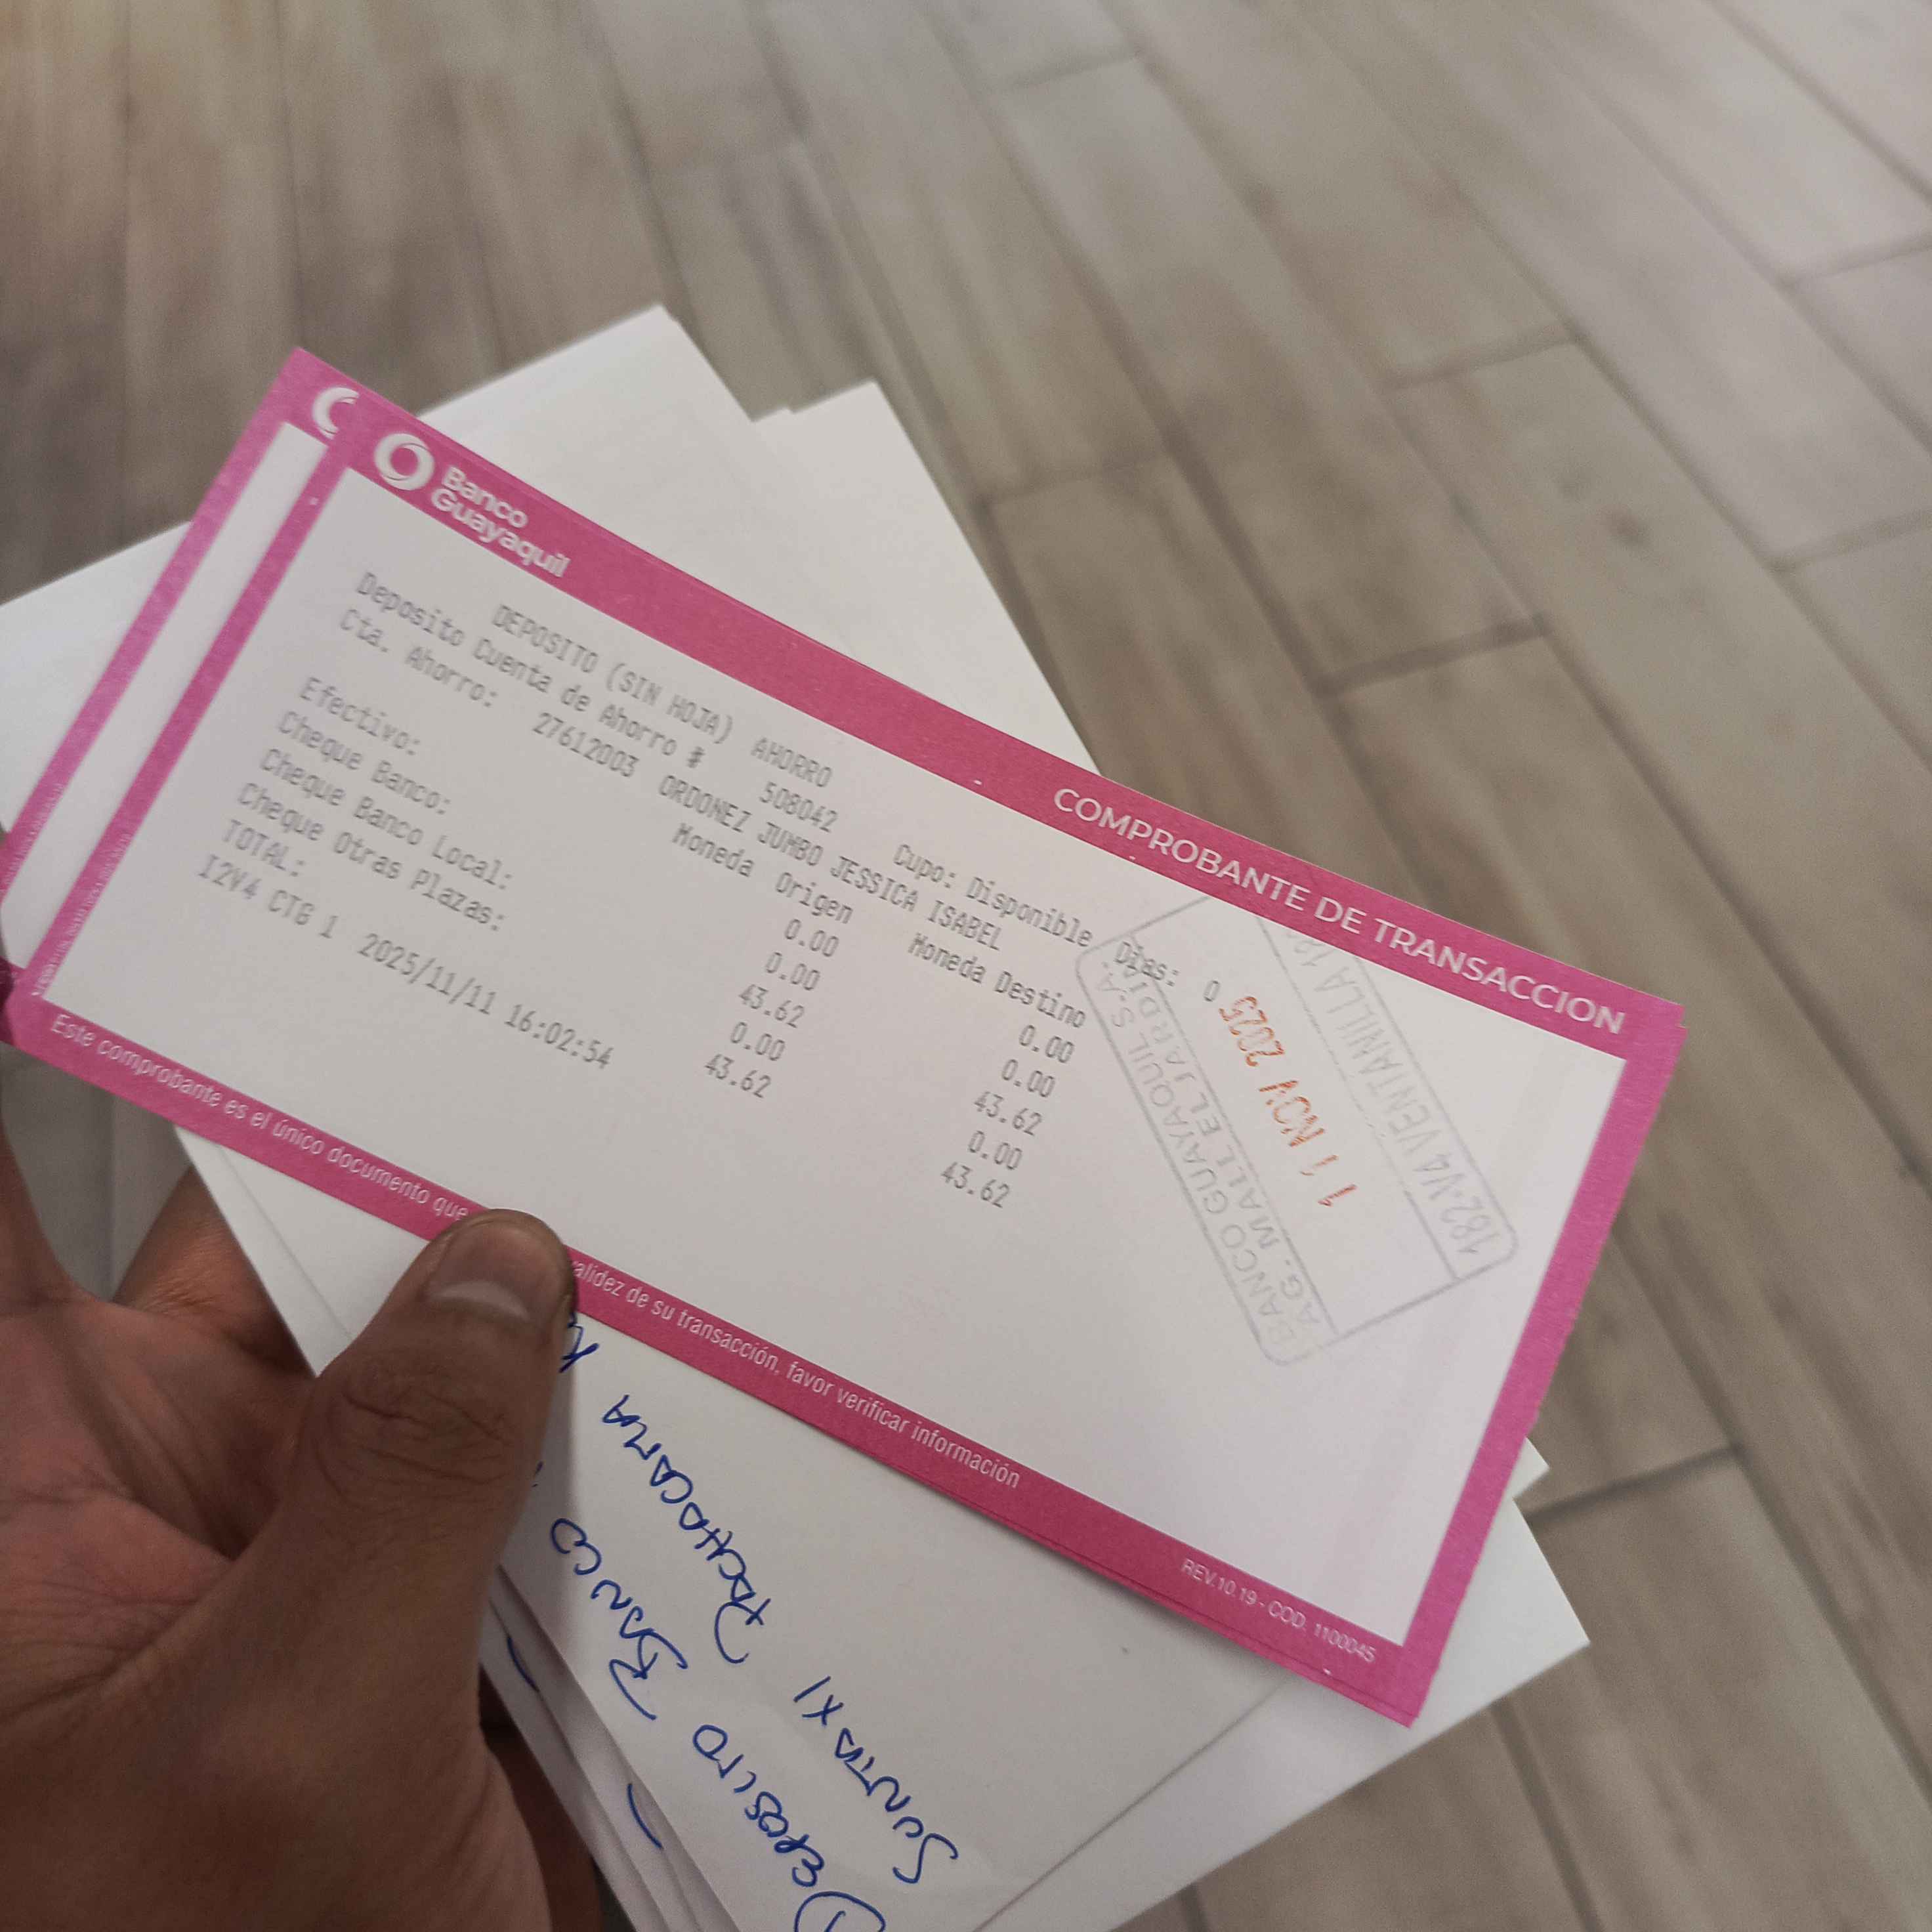 Banco
Guayaquil
COMPROBANTE DE TRANSACCION
DEPOSITO (SIN HOJA) AHORRO
Deposito Cuenta de Ahorro # 508042 Cupo: Disponible Dias: 0
Cta. Ahorro: 27612003 ORDONEZ JUMBO JESSICA ISABEL
Moneda Origen Moneda Destino
Efectivo: 0.00 0.00
Cheque Banco: 0.00 0.00
Cheque Banco Local: 43.62 43.62
Cheque Otras Plazas: 0.00 0.00
TOTAL: 43.62 43.62
I2V4 CTG 1 2025/11/11 16:02:54
BANCO GUAYAQUIL S.A.
AG. MALL EL JARDIN
11 NOV 2025
182-V4 VENTANILLA
Este comprobante es el único documento que validez de su transacción, favor verificar información
REV.10.19 - COD. 1100045
DEPOSITO BANCO
SUNTAXI PACHACAMA